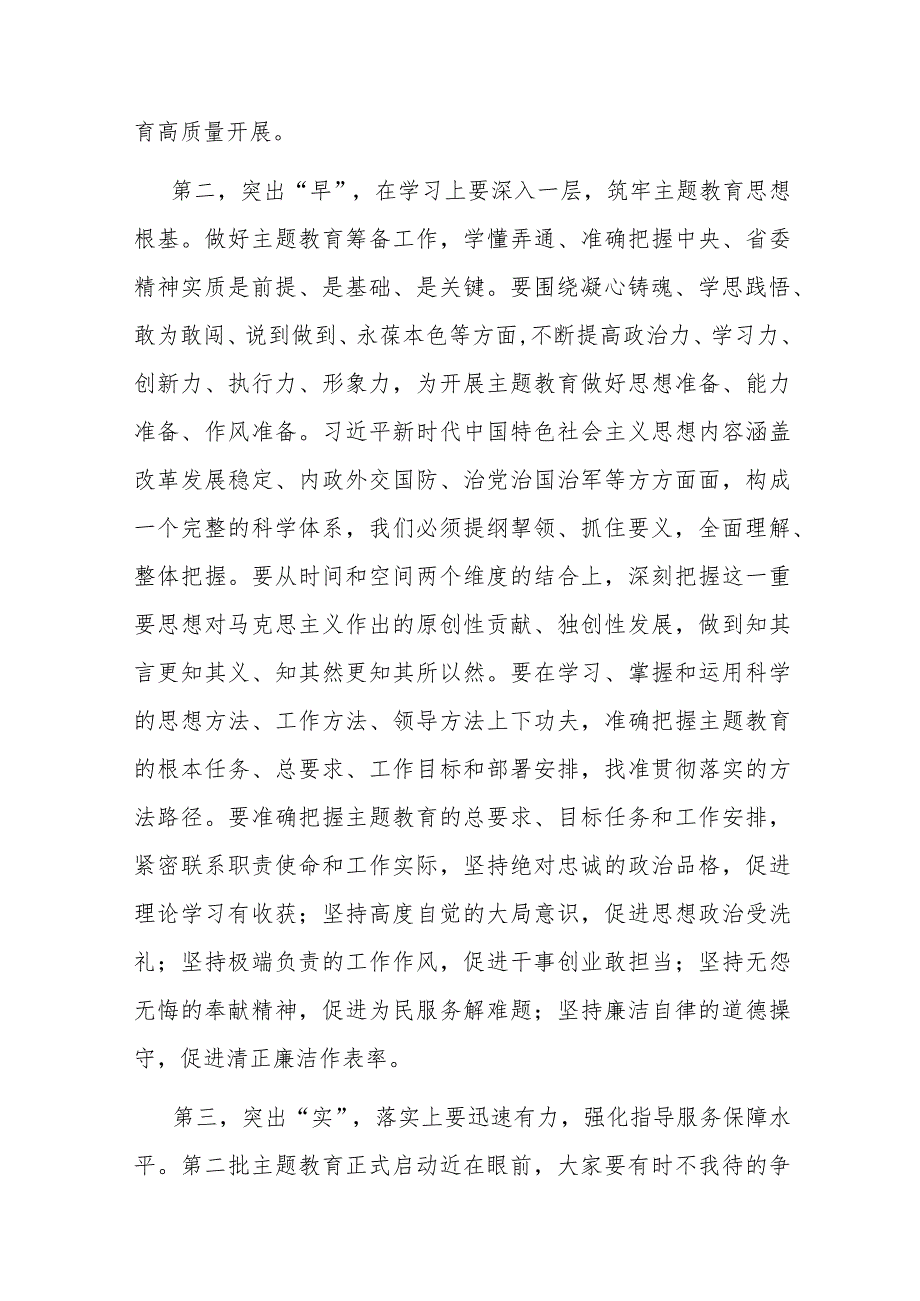 育高质量开展。
第二，突出“早”，在学习上要深入一层，筑牢主题教育思想
根基。做好主题教育筹备工作，学懂弄通、准确把握中央、省委
精神实质是前提、是基础、是关键。要围绕凝心铸魂、学思践悟、
敢为敢闯、说到做到、永葆本色等方面,不断提高政治力、学习力、
创新力、执行力、形象力，为开展主题教育做好思想准备、能力
准备、作风准备。习近平新时代中国特色社会主义思想内容涵盖
改革发展稳定、内政外交国防、治党治国治军等方方面面，构成
一个完整的科学体系，我们必须提纲挈领、抓住要义，全面理解、
整体把握。要从时间和空间两个维度的结合上，深刻把握这一重
要思想对马克思主义作出的原创性贡献、独创性发展，做到知其
言更知其义、知其然更知其所以然。要在学习、掌握和运用科学
的思想方法、工作方法、领导方法上下功夫，准确把握主题教育
的根本任务、总要求、工作目标和部署安排，找准贯彻落实的方
法路径。要准确把握主题教育的总要求、目标任务和工作安排，
紧密联系职责使命和工作实际，坚持绝对忠诚的政治品格，促进
理论学习有收获；坚持高度自觉的大局意识，促进思想政治受洗
礼；坚持极端负责的工作作风，促进干事创业敢担当；坚持无怨
无悔的奉献精神，促进为民服务解难题；坚持廉洁自律的道德操
守，促进清正廉洁作表率。
第三，突出“实”，落实上要迅速有力，强化指导服务保障水
平。第二批主题教育正式启动近在眼前，大家要有时不我待的争